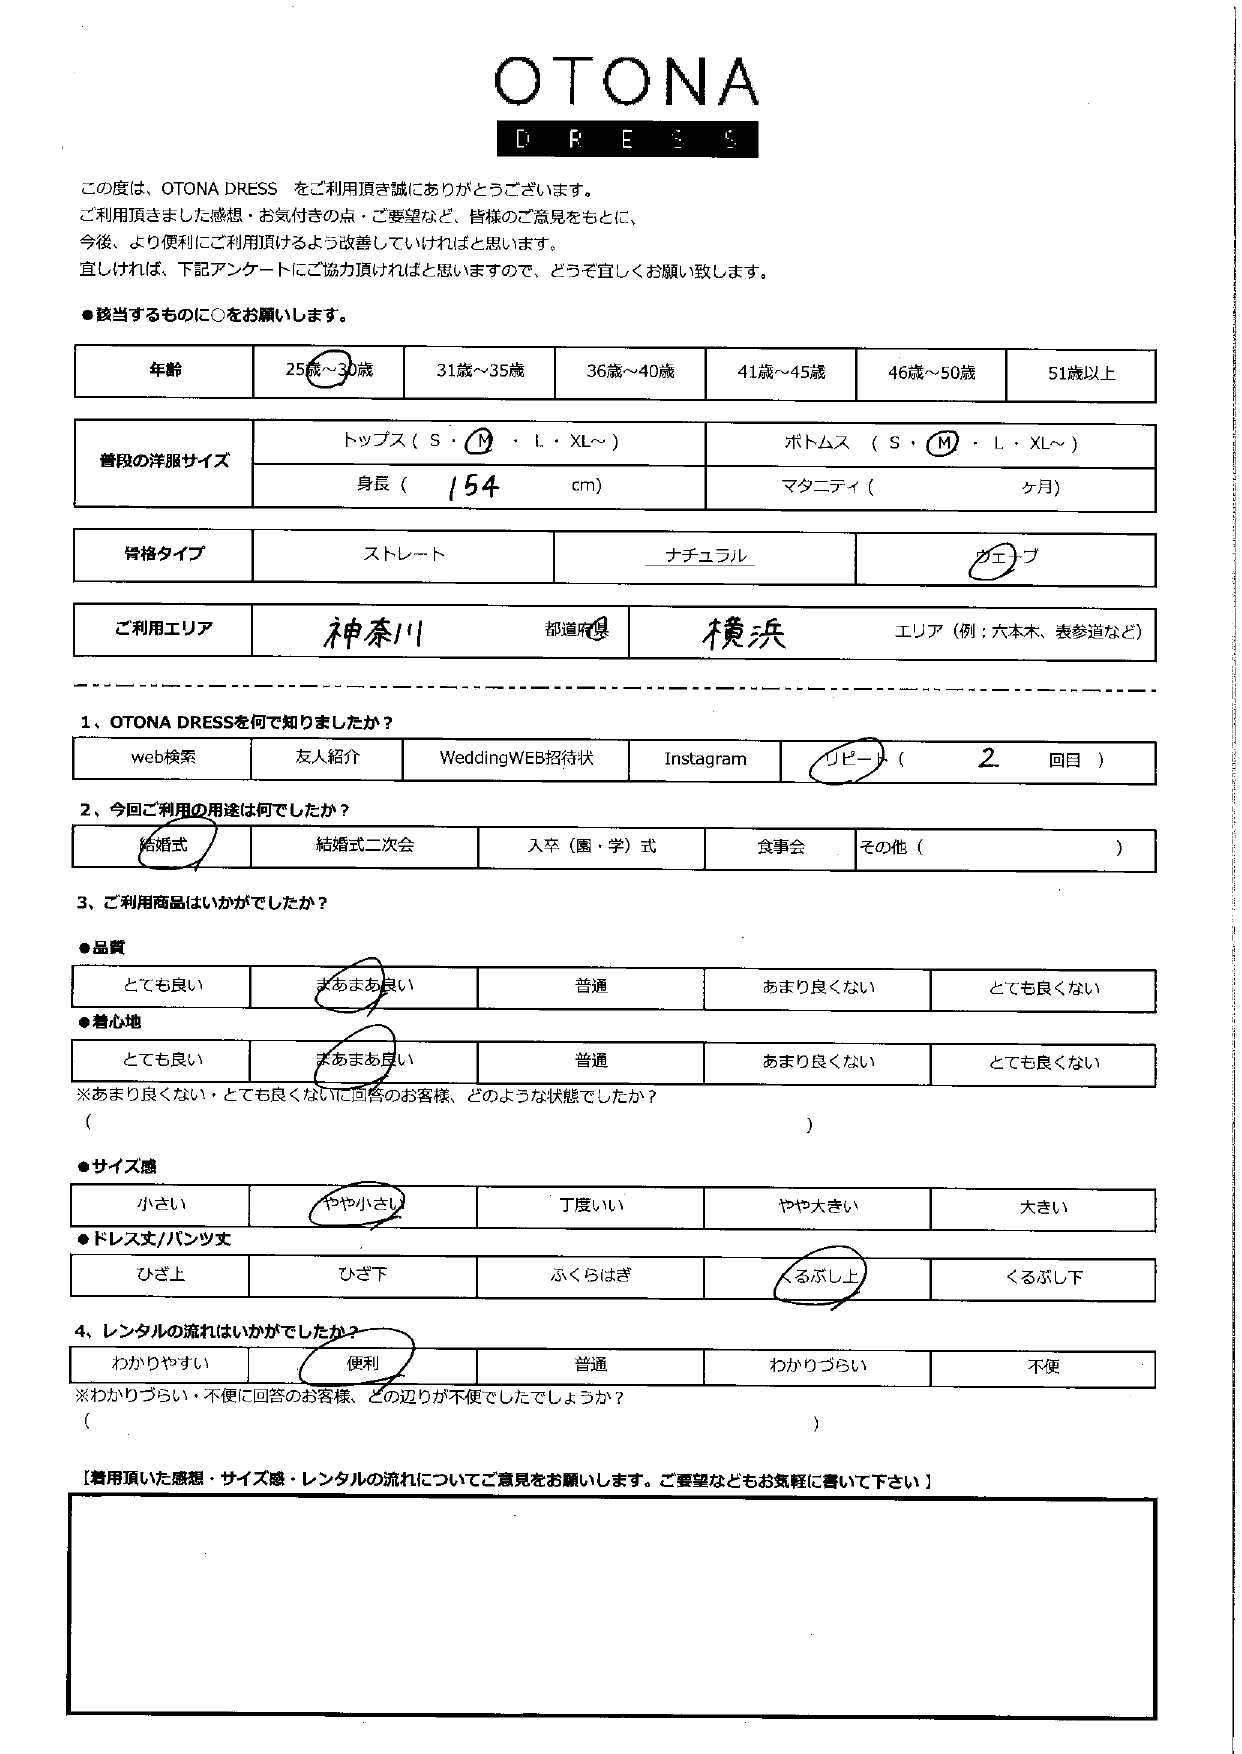 OTONA
DRESS
この度は、OTONA DRESS　をご利用頂き誠にありがとうございます。
ご利用頂きました感想・お気付きの点・ご要望など、皆様のご意見をもとに、
今後、より便利にご利用頂けるよう改善していければと思います。
宜しければ、下記アンケートにご協力頂ければと思いますので、どうぞ宜しくお願い致します。
●該当するものに○をお願いします。
年齢 25歳～30歳 31歳～35歳 36歳～40歳 41歳～45歳 46歳～50歳 51歳以上
普段の洋服サイズ トップス ( S ・ M ・ L ・ XL～ ) ボトムス ( S ・ M ・ L ・ XL～ )
身長 ( 154 cm) マタニティ ( ケ月)
骨格タイプ ストレート ナチュラル ウェーブ
ご利用エリア 神奈川 都道府県 横浜 エリア（例：六本木、表参道など）
1、OTONA DRESSを何で知りましたか？
web検索 友人紹介 WeddingWEB招待状 Instagram リピート ( 2 回目 )
2、今回ご利用の用途は何でしたか？
結婚式 結婚式二次会 入卒（園・学）式 食事会 その他 ( )
3、ご利用商品はいかがでしたか？
●品質
とても良い まあまあ良い 普通 あまり良くない とても良くない
●着心地
とても良い まあまあ良い 普通 あまり良くない とても良くない
※あまり良くない・とても良くないに回答のお客様、どのような状態でしたか？
( )
●サイズ感
小さい やや小さい 丁度いい やや大きい 大きい
●ドレス丈/パンツ丈
ひざ上 ひざ下 ふくらはぎ くるぶし上 くるぶし下
4、レンタルの流れはいかがでしたか？
わかりやすい 便利 普通 わかりづらい 不便
※わかりづらい・不便に回答のお客様、どの辺りが不便でしたでしょうか？
( )
【着用頂いた感想・サイズ感・レンタルの流れについてご意見をお願いします。ご要望などもお気軽に書いて下さい】